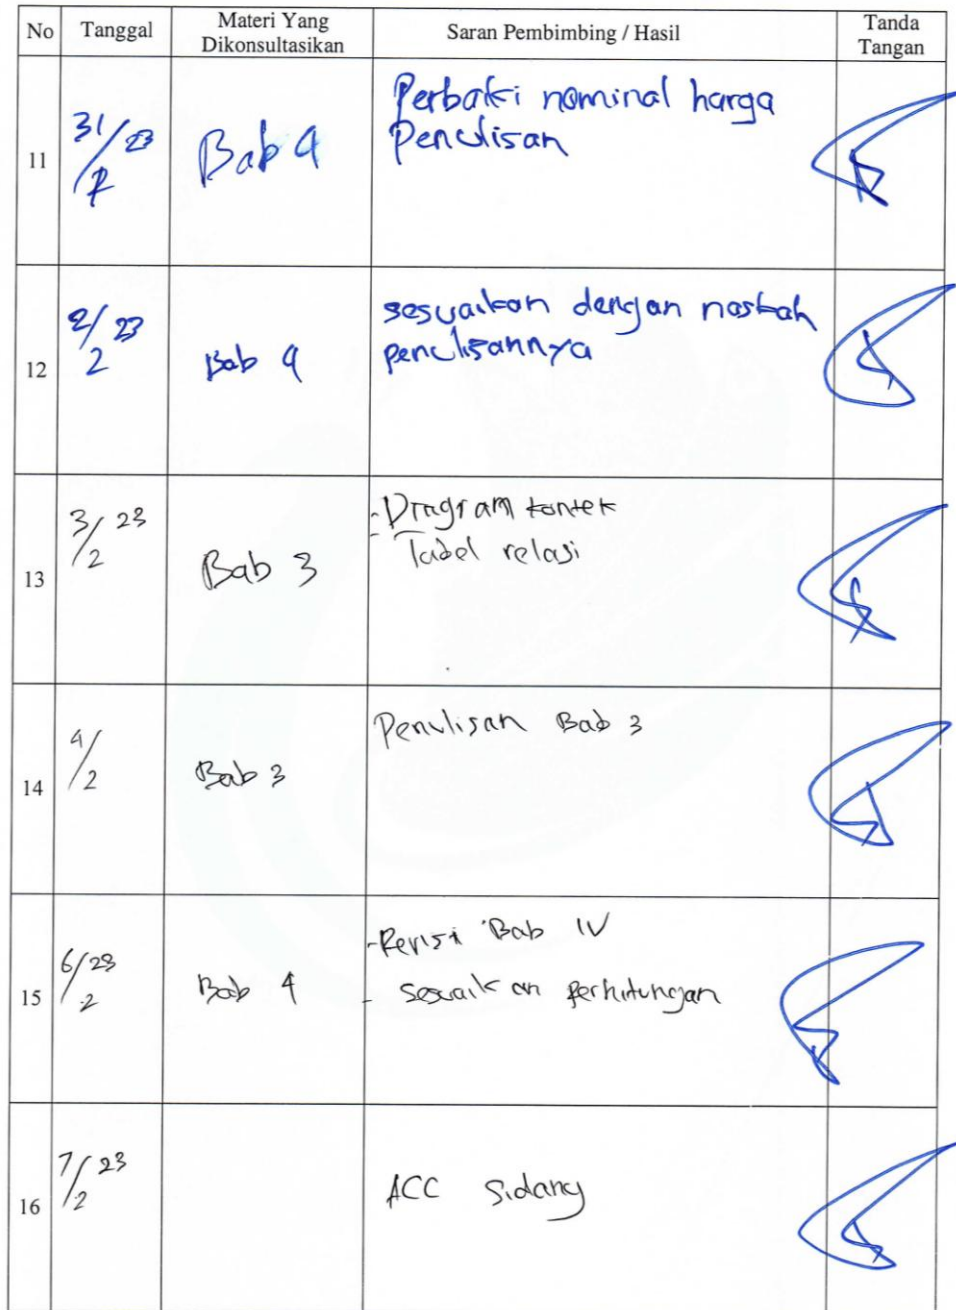 No Tanggal Materi Yang Dikonsultasikan Saran Pembimbing / Hasil Tanda Tangan
11 31/ 23 Bab 4 Perbaiki nominal harga
Penulisan
12 2/2 23 Bab 4 sesuaikan dengan naskah
penulisannya
13 3/2 23 Bab 3 - Diagram kontek
- Tabel relasi
14 4/2 Bab 3 Penulisan Bab 3
15 6/2 23 Bab 4 - Revisi Bab IV
- sesuaikan perhitungan
16 7/2 23 ACC Sidang